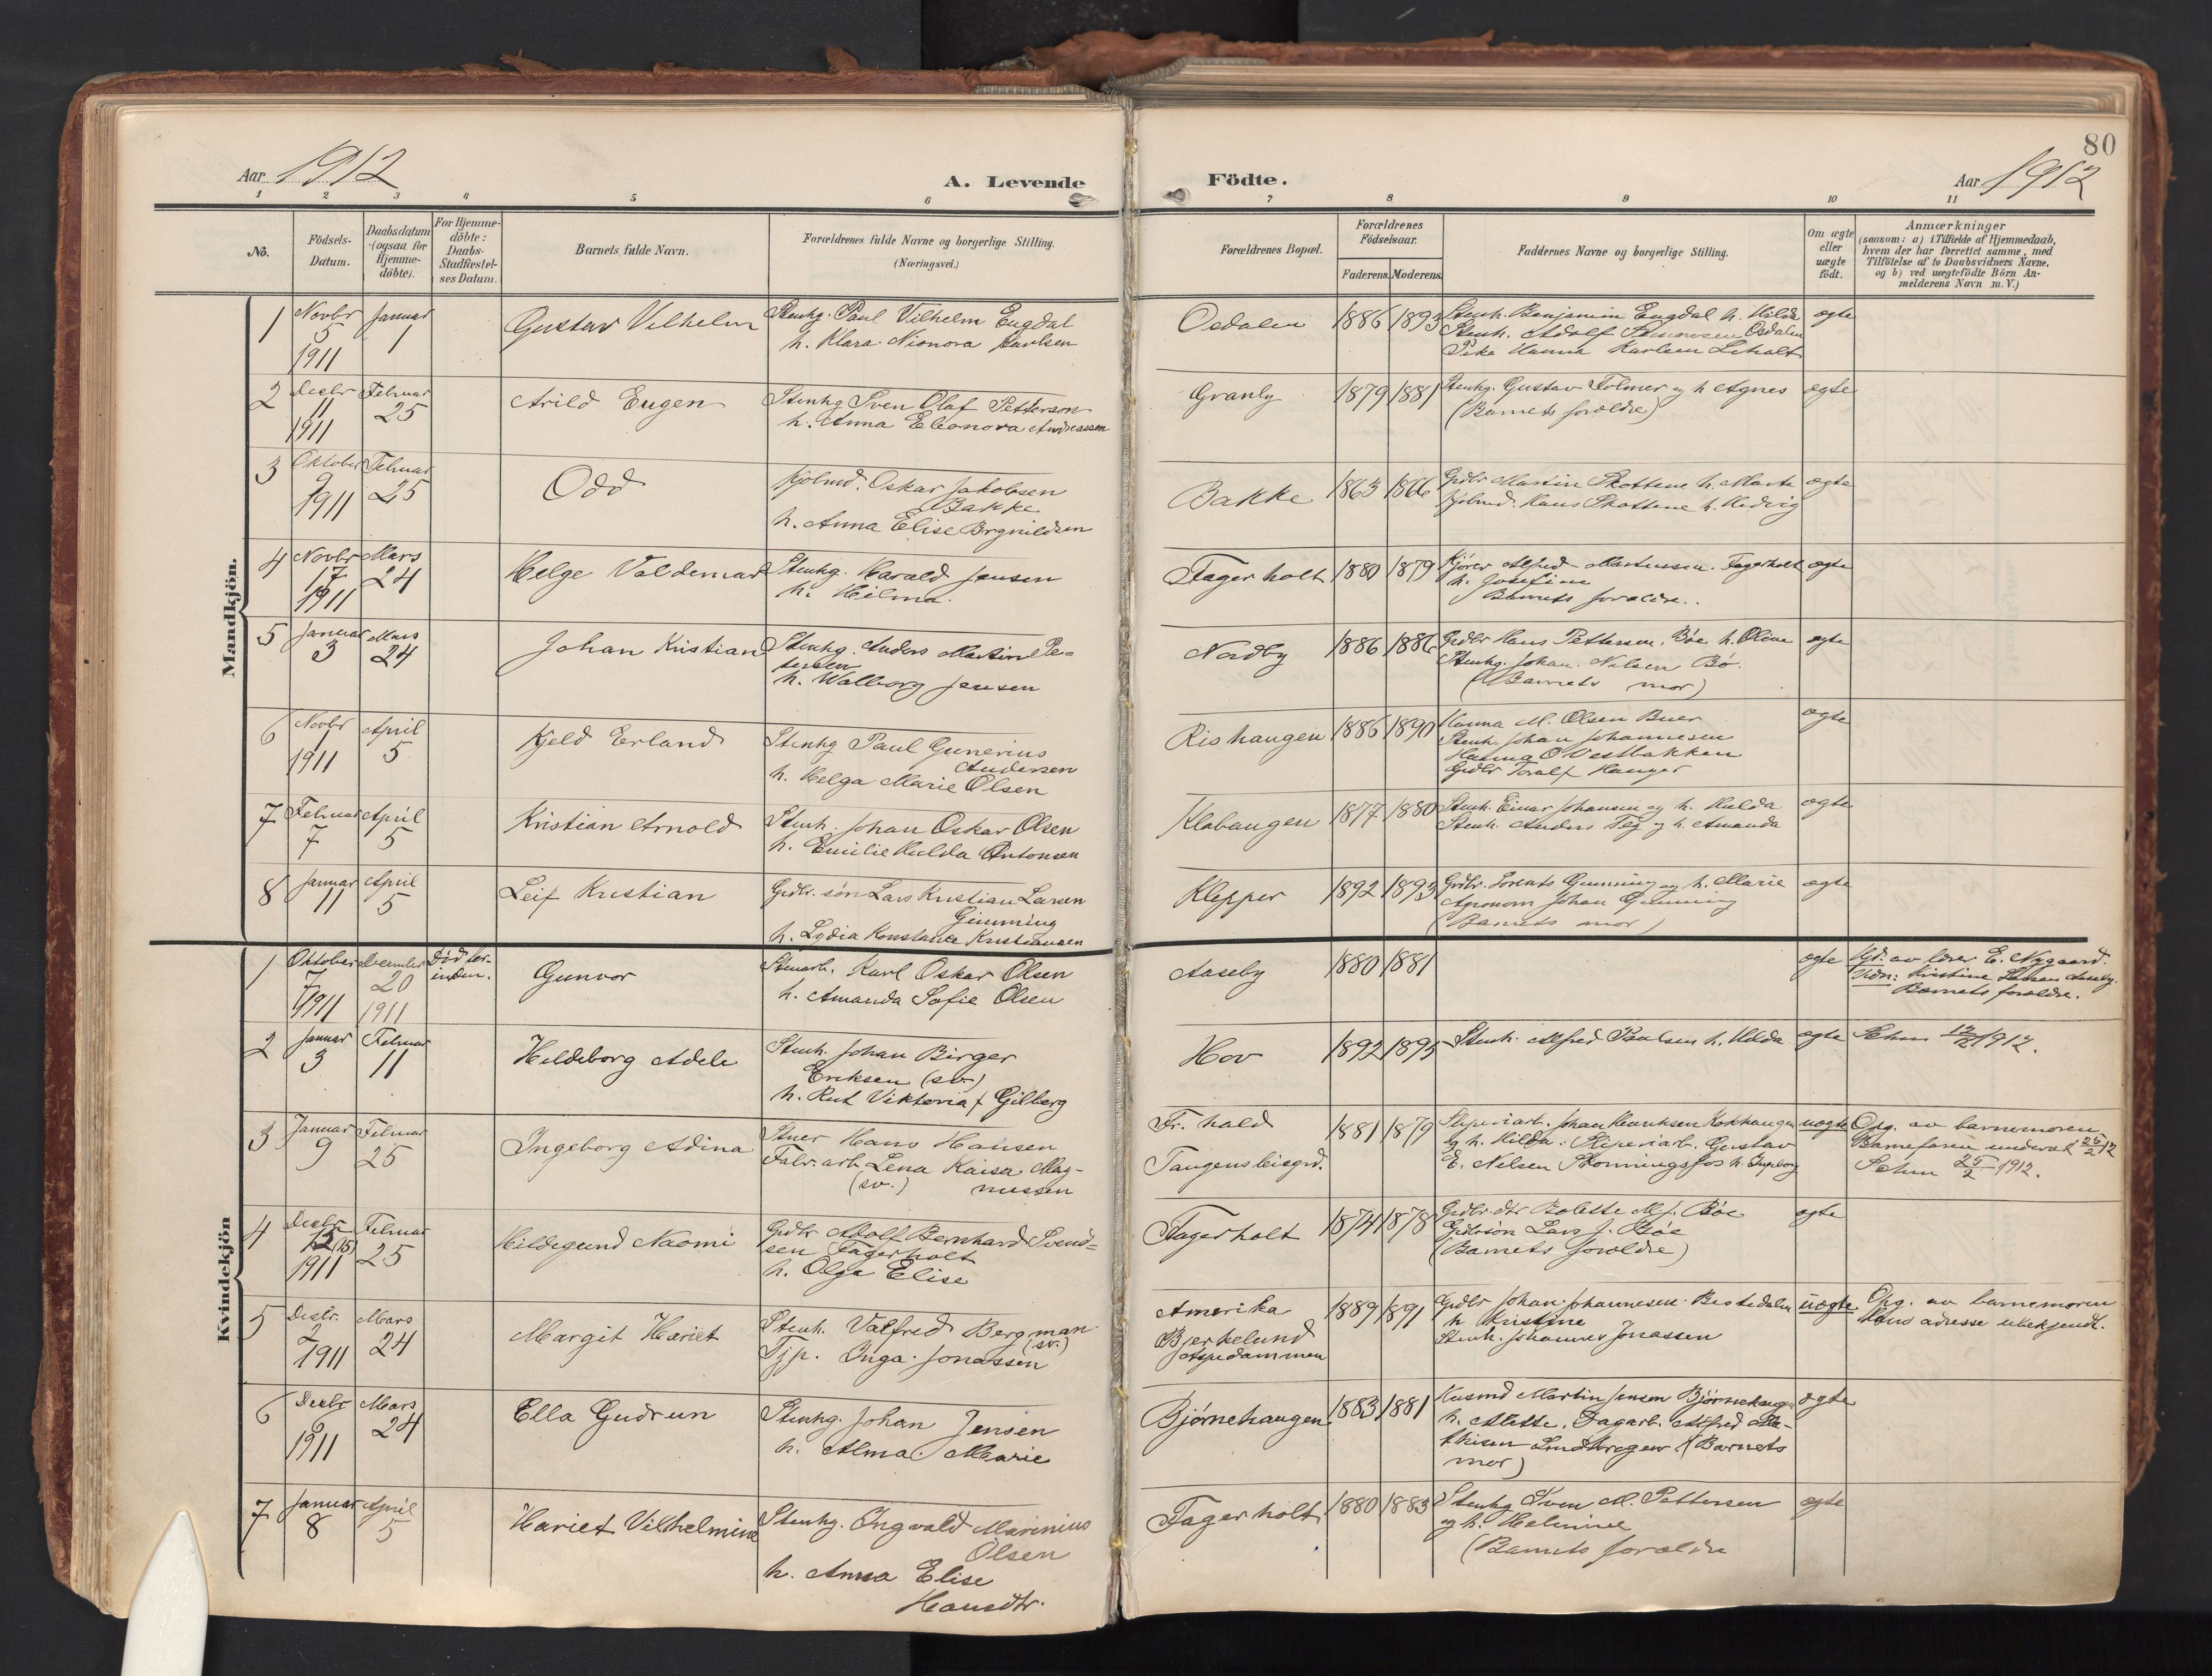 80
Aar 1912
A. Levende
Födte.
Aar 1912
1 2 3 4 5 6 7 8 9 10 11
No.
Födsels-
Datum.
Daabsdatum
(ogsaa for
Hjemme-
döbte).
For Hjemme-
döbte:
Daabs-
Stadfæstel-
ses Datum.
Barnets fulde Navn.
Forældrenes fulde Navne og borgerlige Stilling.
(Næringsvei.)
Forældrenes Bopæl.
Forældrenes
Födselsaar.
Faderens.
Moderens.
Faddernes Navne og borgerlige Stilling.
Om ægte
eller
uægte
födt.
Anmærkninger
(saasom: a) i Tilfælde af Hjemmedaab,
hvem der har forrettet samme, med
Tilföielse af to Daabsvidners Navne,
og b) ved uægtefödte Börn An-
melderens Navn m. V.)
Mandkjön.
1
Novbr
5
1911
Januar
1
Gustav Vilhelm
Stenhg. Paul Vilhelm Engdal
h. Klara Nionora Paulsen
Osdalen
1886
1893
Stenh. Benjamin Engdal h. Hilda
Stenh. Adolf Osdalen
Pike Hanna Karlsen Liholt
ægte
2
Decbr
11
1911
Februar
25
Arild Eugen
Stenhg Sven Olaf Petterson
h. Anna Eleonora Andreassen
Granly
1879
1881
Stenhg. Gustav Folmer og h Agnes
(Barnets forældre)
ægte
3
Oktober
9
1911
Februar
25
Odd
Kjølmd. Oskar Jakobsen
Bakke
h. Anna Elise Brynildsen
Bakke
1863
1866
Grdbr Martin Skottene h. Marte
Kjølmd. Hans Skottene h. Hedvig
ægte
4
Novbr
17
1911
Mars
24
Helge Valdemar
Stenhg. Harald Jensen
h. Hilma.
Fagerholt
1880
1879
Kjører Alfred Martinsen. Fagerholt
h. Josefine
Barnets forældre.
ægte
5
Januar
3
Mars
24
Johan Kristian
Stenhg. Anders Martin Pe-
tersen
h. Walborg Jensen
Nordby
1886
1886
Grdbr Hans Pettersen, Bøe h. Oline
Stenhg. Johan Nilsen Bø.
(Barnets mor)
ægte
6
Novbr
1
1911
April
5
Kjeld Erland
Stenhg Paul Gunerius
Andersen
h. Helga Marie Olsen
Rishaugen
1886
1890
Hanna M. Olsen Buer
Stenh. Johan Johannesen
Hanna O Vestbakken
Grdbr Toralf Hauger
ægte
7
Februar
7
April
5
Kristian Arnold
Stenh. Johan Oskar Olsen
h. Emilie Hulda Antonsen
Klohaugen
1877
1880
Stenh. Einar Johansen og h. Hulda
Stenh. Anders Teg og h. Amanda
ægte
8
Januar
11
April
5
Leif Kristian
Grdbr. søn Lars Kristian Larsen
Gimming
h. Lydia Konstance Kristiansen
Klepper
1892
1893
Grdbr. Lorents Gimming og h. Marie
Agronom Johan Gimming
(Barnets mor)
ægte
Kvindekjön
1
Oktober
7
1911
December
20
1911
Død for-
inden.
Gunvor
Stenarb. Karl Oskar Olsen
h. Amanda Sofie Olsen
Aaseby
1880
1881
ægte
Hjd. av lærer E. Nygaard.
Vidn: Kristine Larsen Aaseby.
Barnets forældre.
2
Januar
3
Februar
11
Hildeborg Adele
Stenh. Johan Birger
Eriksen (sv.)
h. Rut Viktoria f Gilberg
Hov
1892
1895
Stenh. Alfred Paulsen h. Hilda
ægte
12/2 1912.
3
Januar
9
Februar
25
Ingeborg Adina
Hans Hansen
Fabr. arb. Lena Kaisa Mag-
(sv.) nussen
Fr. hald
Tangens leiegrd.
1881
1879
Sliperiarb. Johan Henriksen Kokhaugen
og h. Hilda. Sliperiarb. Gustav
E. Nilsen Skonningsfos h. Ingeborg
uægte
Opg. av barnemoren
Barnefaren underret 25/2 12
25/2 1912.
4
Decbr
13 (15)
1911
Februar
25
Hildegund Naomi
Grdbr Adolf Bernhard Svend-
sen Fagerholt
h. Olga Elise
Fagerholt
1874
1878
Grdbr. dtr Bolette M. J. Bøe
Grdbrsøn Lars J. Bøe
(Barnets forældre)
ægte
5
Decbr.
2
1911
Mars
24
Margit Hariet
Stenh. Valfred Bergman
(sv.)
Tjp. Inga Jonassen
Amerika
Bjerkelund
Aspedammen
1889
1891
Grdbr Johan Johannesen Bestedalen
h Kristine
Stenh. Johannes Jonassen
uægte.
Opg. av barnemoren
Hans adresse ubekjendt.
6
Decbr
9
1911
Mars
24
Ella Gudrun
Stenhg. Johan Jensen
h. Alma Marie
Bjørnehaugen
1883
1881
Husmd Martin Jensen Bjørnehaugen
h. Alette. Dagarb. Alfred Ma-
thisen (Barnets
mor)
ægte
7
Januar
8
April
5
Hariet Vilhelmine
Stenhg. Ingvald Marinius
Olsen
h. Anna Elise
Hansdtr.
Fagerholt
1880
1883
Stenhg Sven M. Pettersen
og h. Helmine
(Barnets forældre
ægte